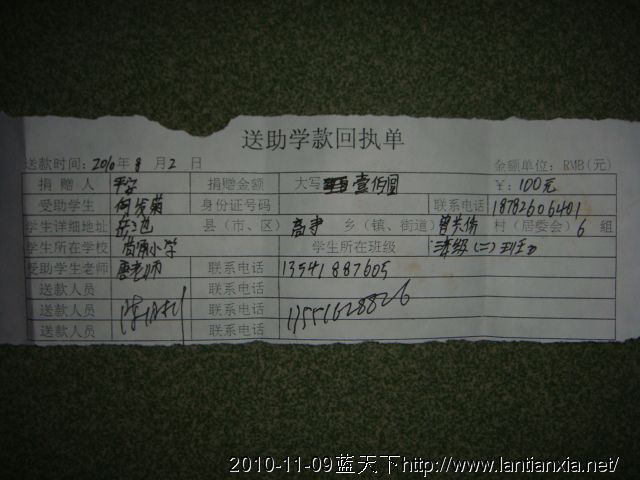 送助学款回执单
送款时间: 2010年8月2日 金额单位: RMB(元)
捐赠人 平安 捐赠金额 大写 壹佰圆 ¥: 100元
受助学生 身份证号码 联系电话 18782606401
学生详细地址 县(市、区) 高寺 乡(镇、街道) 村(居委会) 6 组
学生所在学校 小学 学生所在班级
受助学生老师 唐老师 联系电话 13541887605
送款人员 联系电话
送款人员 联系电话 13551628826
送款人员 联系电话
2010-11-09蓝天下http://www.lantianxia.net/